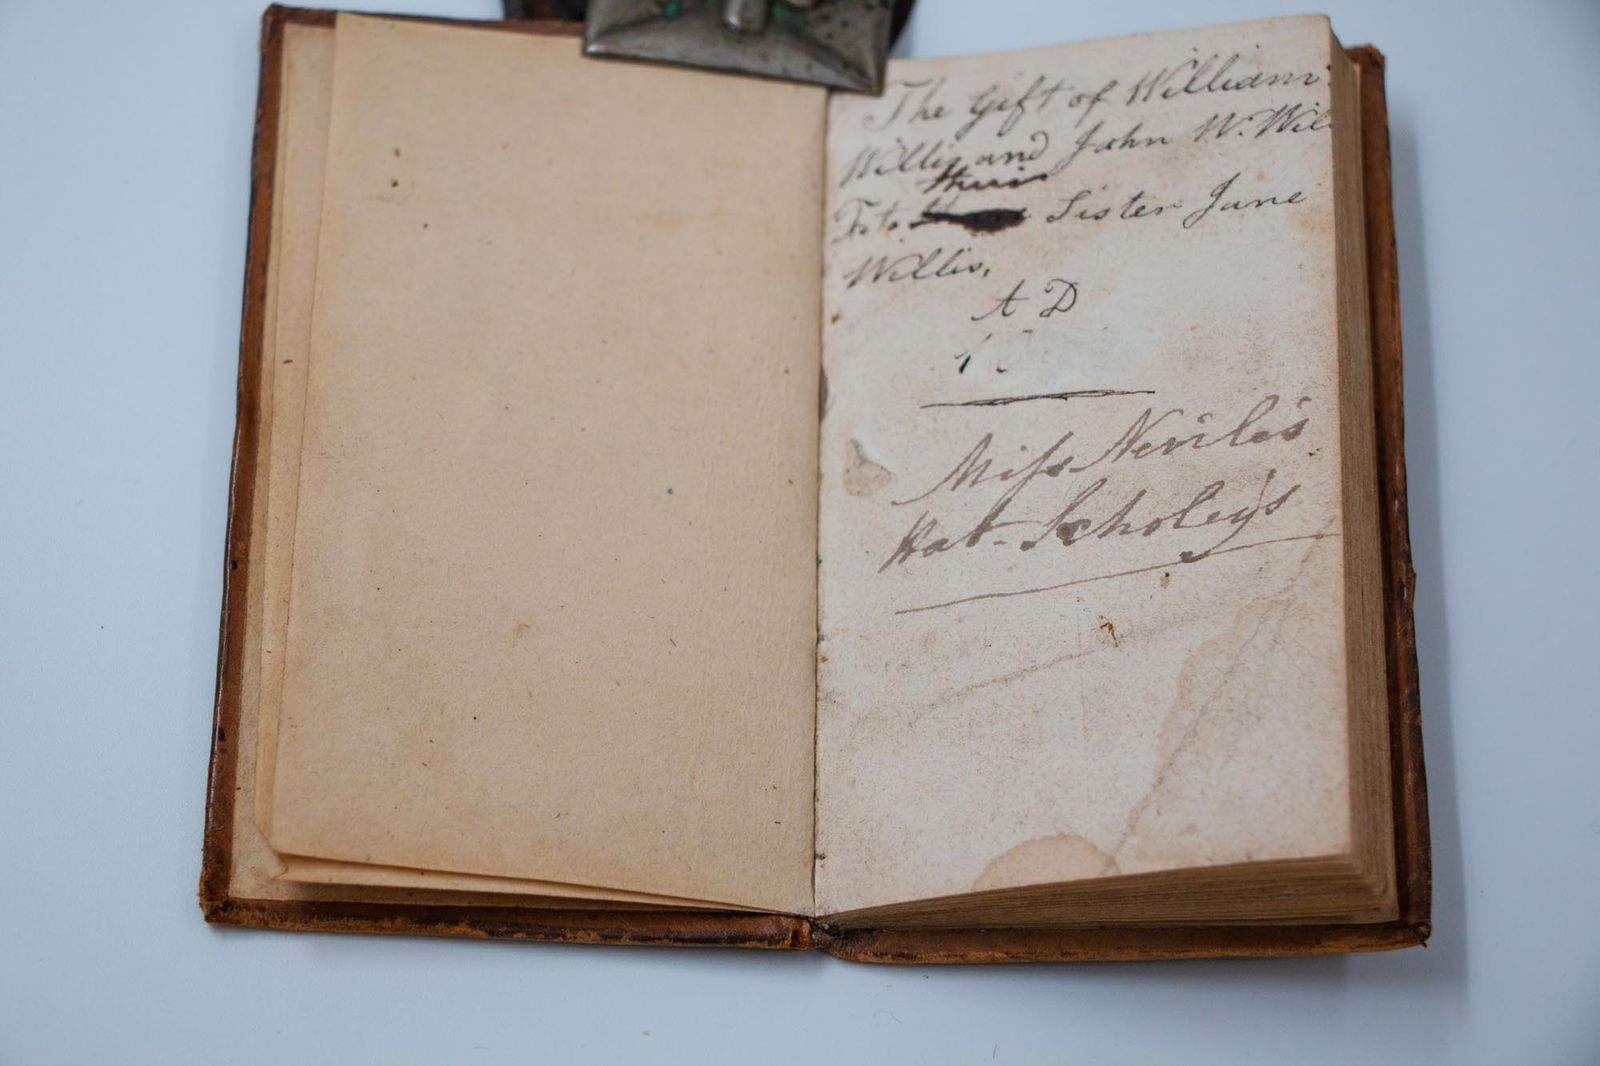 The Gift of William
Willis and John W. Wil
their
To Sister Jane
Willis,
A D
1
Miss Nevile's
Hat-Scholey's